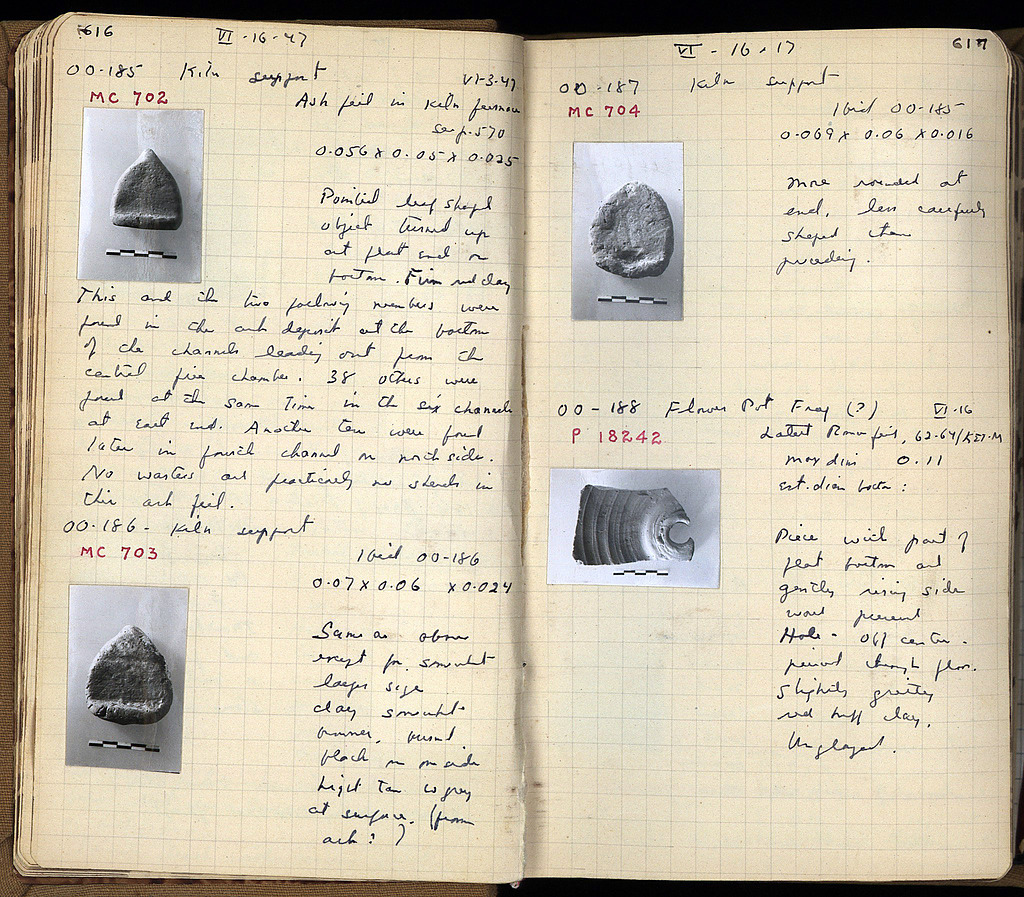 616
VI-16-47
OO-185 Kiln support VI-3-47
MC 702
Ash fill in kiln furnace
see p. 570
0.056 x 0.05 x 0.025
Pointed leaf shaped
object turned up
at flat end on
bottom. Firm red clay
This and the two following numbers were
found in the ash deposit at the bottom
of the channels leading out from the
central fire chamber. 38 others were
found at the same time in the six channels
at east end. Another ten were found
later in fourth channel on north side.
No wasters and practically no sherds in
this ash fill.
OO-186 - Kiln support
MC 703
Ibid OO-186
0.07 x 0.06 x 0.024
Same as above
except for somewhat
larger size
clay somewhat
burned
black on
light tan to grey
at surface. (from
ash?)
617
VI-16-17
OO-187 Kiln support
MC 704
Ibid OO-185
0.069 x 0.06 x 0.016
more rounded at
end, less carefully
shaped than
preceding.
OO-188 Flower Pot Frag (?) VI-16
P 18242
Latest Roman fill, 62-64/
max dim 0.11
est. diam bottom:
Piece with part of
flat bottom and
gently rising side
wall preserved
Hole - off center -
pierced through floor.
Slightly gritty
red buff clay.
Unglazed.